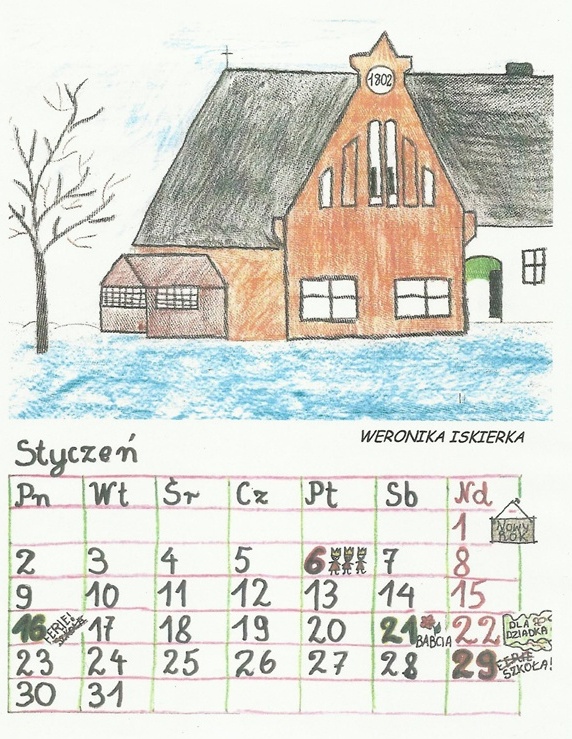 1802
WERONIKA ISKIERKA
Styczeń
Pn Wt Śr Cz Pt Sb Nd
1 NOWY ROK
2 3 4 5 6 7 8
9 10 11 12 13 14 15
16 FERIE! SZKOŁA 17 18 19 20 21 BABCIA 22 DLA DZIADKA
23 24 25 26 27 28 29 FERIE SZKOŁA!
30 31